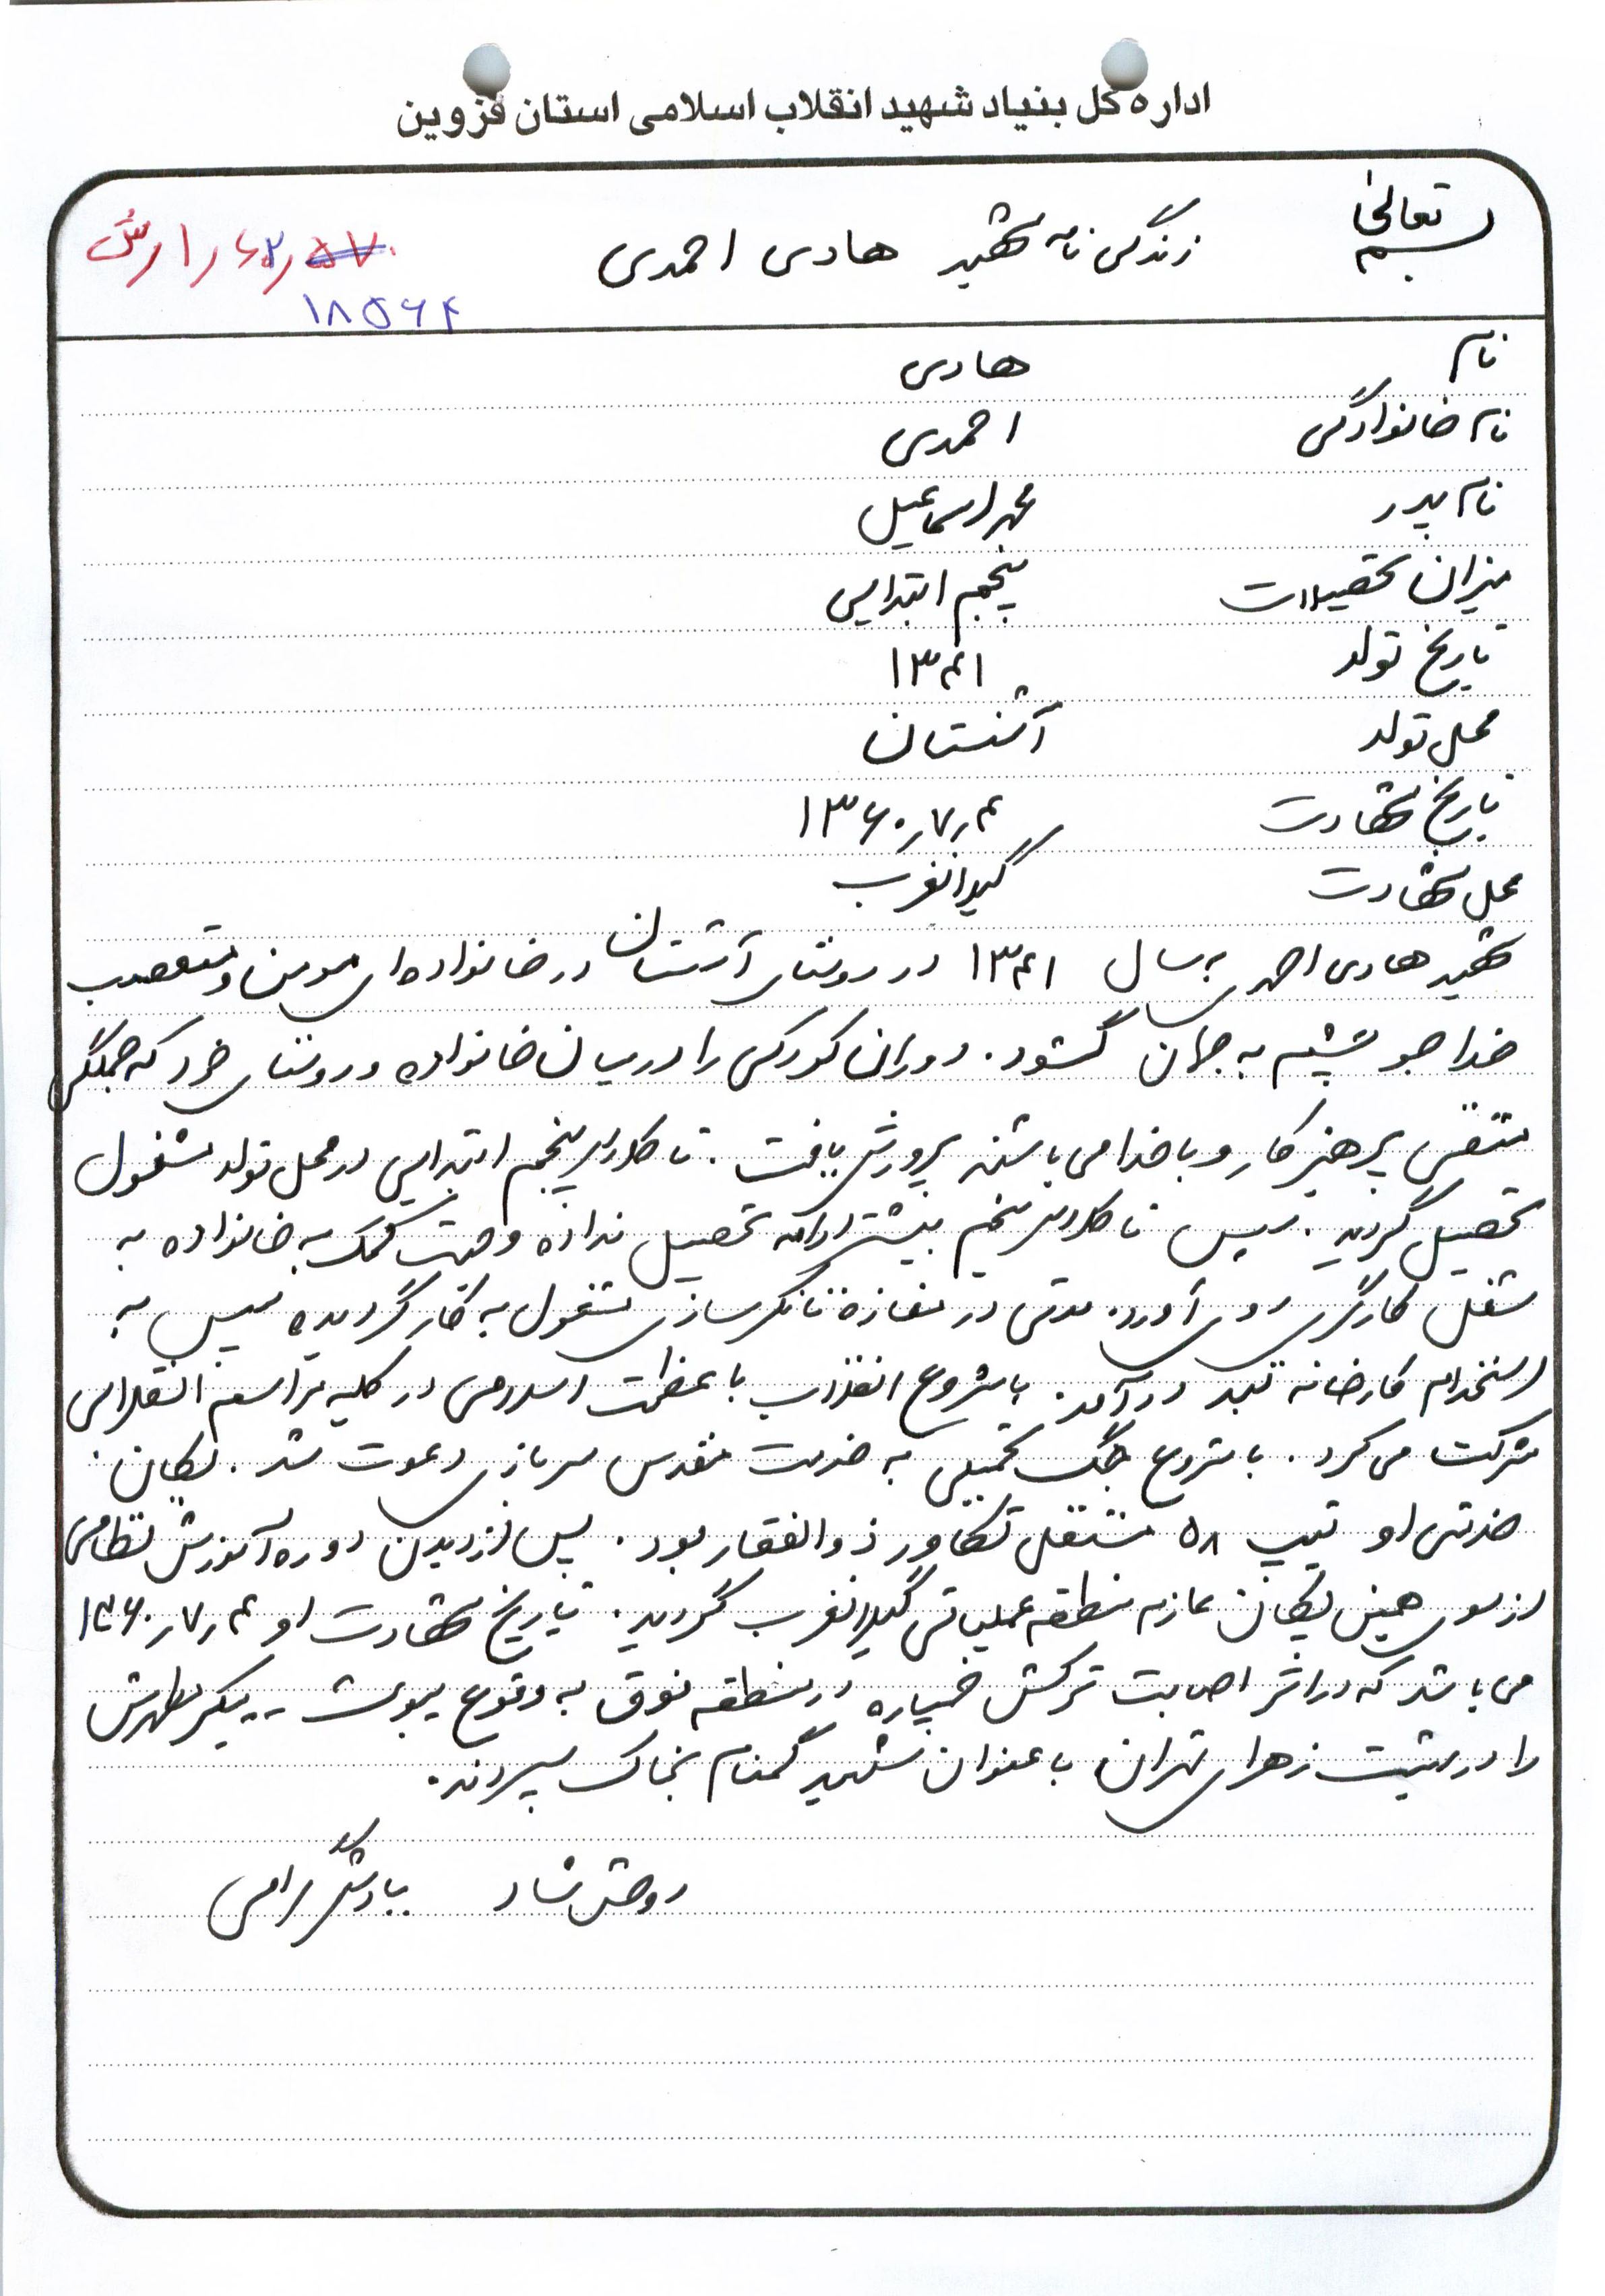 اداره کل بنیاد شهید انقلاب اسلامی استان قزوین
بسم تعالی
زندگی نامه شهید هادی احمدی
۱۸۵۶۴
نام هادی
نام خانوادگی احمدی
نام پدر محمد اسماعیل
میزان تحصیلات پنجم ابتدایی
تاریخ تولد ۱۳۴۱
محل تولد آتشتان
تاریخ شهادت ۱۳۶۰/۷/۴
محل شهادت گیلانغرب
شهید هادی احمدی به سال ۱۳۴۱ در روستای آتشتان در خانواده ای مومن و متعصب
خدا جو چشم به جهان گشود. دوران کودکی را در میان خانواده و روستای خود که جملگی
متقی پرهیزکار و با خدا می باشند پرورش یافت. تا کلاس پنجم ابتدایی در محل تولد مشغول
تحصیل گردید. سپس تا کلاس پنجم بیشتر ادامه تحصیل نداده و جهت کمک به خانواده به
شغل کارگری روی آورد. مدتی در مغازه تانکر سازی مشغول به کار گردیده سپس به
استخدام کارخانه در آمد. با شروع انقلاب با عظمت اسلامی در کلیه مراسم انقلابی
شرکت می کرد. با شروع جنگ تحمیلی به خدمت مقدس سربازی دعوت شد. یگان
خدمتی او تیپ ۵۸ مستقل تکاور ذوالفقار بود. پس از دیدن دوره آموزش نظامی
از سوی همین یگان عازم منطقه عملیاتی گیلانغرب گردید. تاریخ شهادت او ۱۳۶۰/۷/۴
می باشد که در اثر اصابت ترکش خمپاره در منطقه فوق به وقوع پیوست -- پیکر مطهرش
را در بهشت زهرای تهران با عنوان شهید گمنام بخاک سپردند.
روحش شاد یادش گرامی